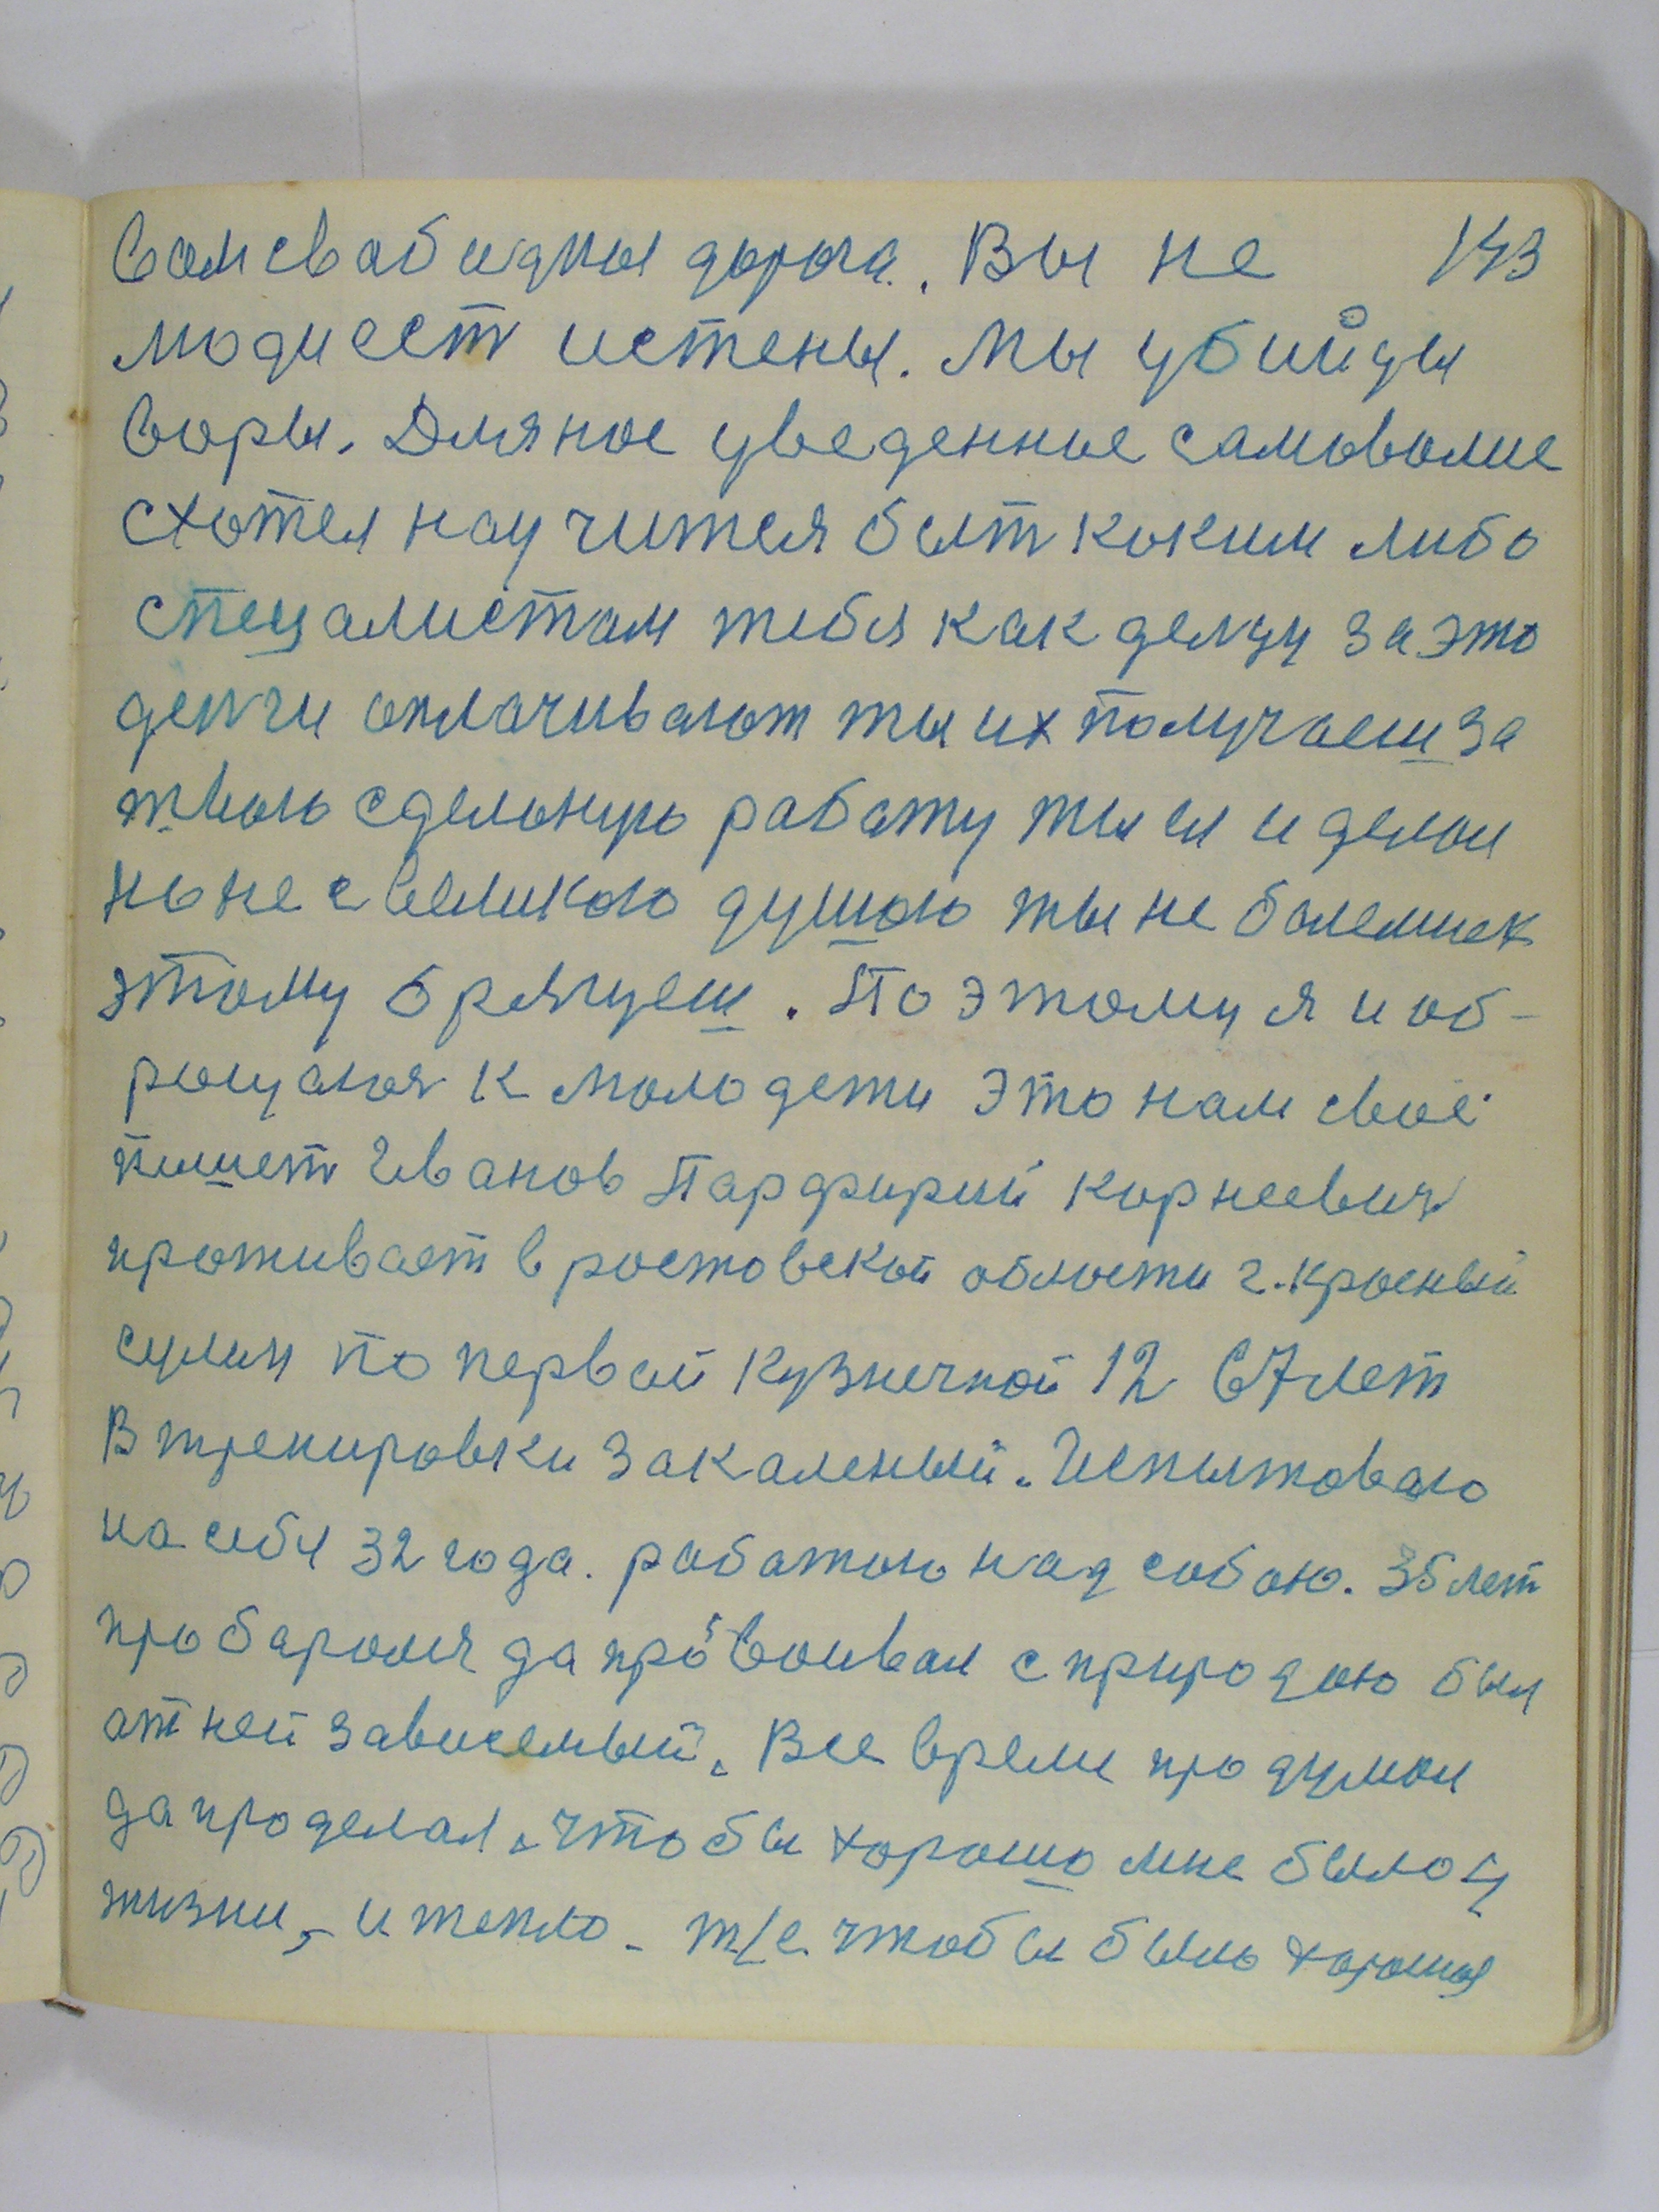 вам свабидны дорога. Вы не 143
люди ест истены. Мы убийцы
воры. Для нас уведенное самоволие
схотел научится быт каким либо
спецалистам тебя как делцу за это
денги оплачивают ты их получаеш за
твою сделоную работу ты ея и делаи
но не с великою душою ты не болеешек
этому брягуеш. По этому я и об-
ращаюя к молодети Это нам свое
пишет Иванов Парфирий Корнеевич
проживает в ростовской области г. Красный
сулин по первой Кузнечной 12 67 лет
В тренировки закаленый. Испытоваю
на себя 32 года. работою над собою. 35 лет
пробаролся да провоивал с природою был
от ней зависемый. Все время продумал
да проделал. что бы хорошо мне было у
жизни, и тепло. т/е. чтобы было хорошая